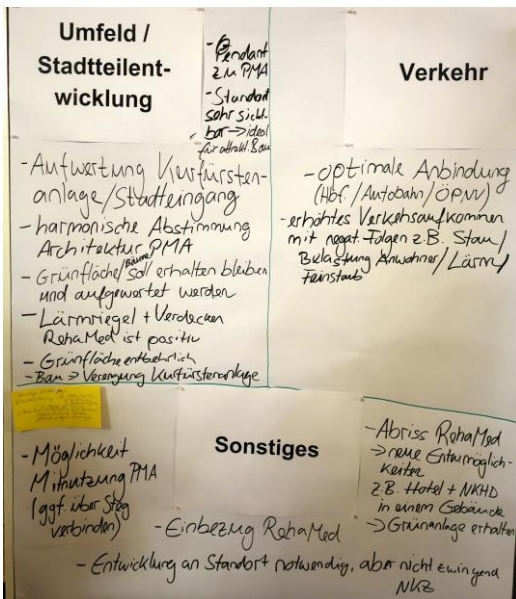 Umfeld /
Stadtteilent-
wicklung
- Pendant
zu PMA
- Standort
sehr sicht-
bar → ideal
für attrakt. Bau
- Aufwertung Kurfürsten-
anlage/Stadteingang
- harmonische Abstimmung
Architektur PMA
- Grünfläche/Bäume soll erhalten bleiben
und aufgewertet werden
- Lärmriegel + Verdecken
RehaMed ist positiv
- Grünfläche entbehrlich
- Bau → Verengung Kurfürstenanlage
Verkehr
- optimale Anbindung
(Hbf./Autobahn/ÖPNV)
- erhöhtes Verkehrsaufkommen
mit negat. Folgen z.B. Stau/
Belastung Anwohner/Lärm/
Feinstaub
Sonstiges
- Möglichkeit
Mitnutzung PMA
(ggf. über Steg
verbinden)
- Abriss RehaMed
→ neue
keiten
z.B. Hotel + NKHD
in einem Gebäude
→ Grünanlage erhalten
- Einbezug RehaMed
- Entwicklung an Standort notwendig, aber nicht zwingend
NKZ